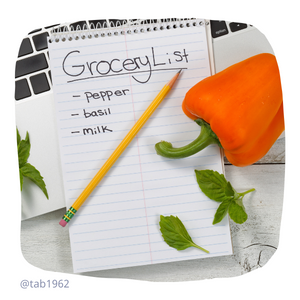 Grocery List
- pepper
- basil
- milk
@tab1962